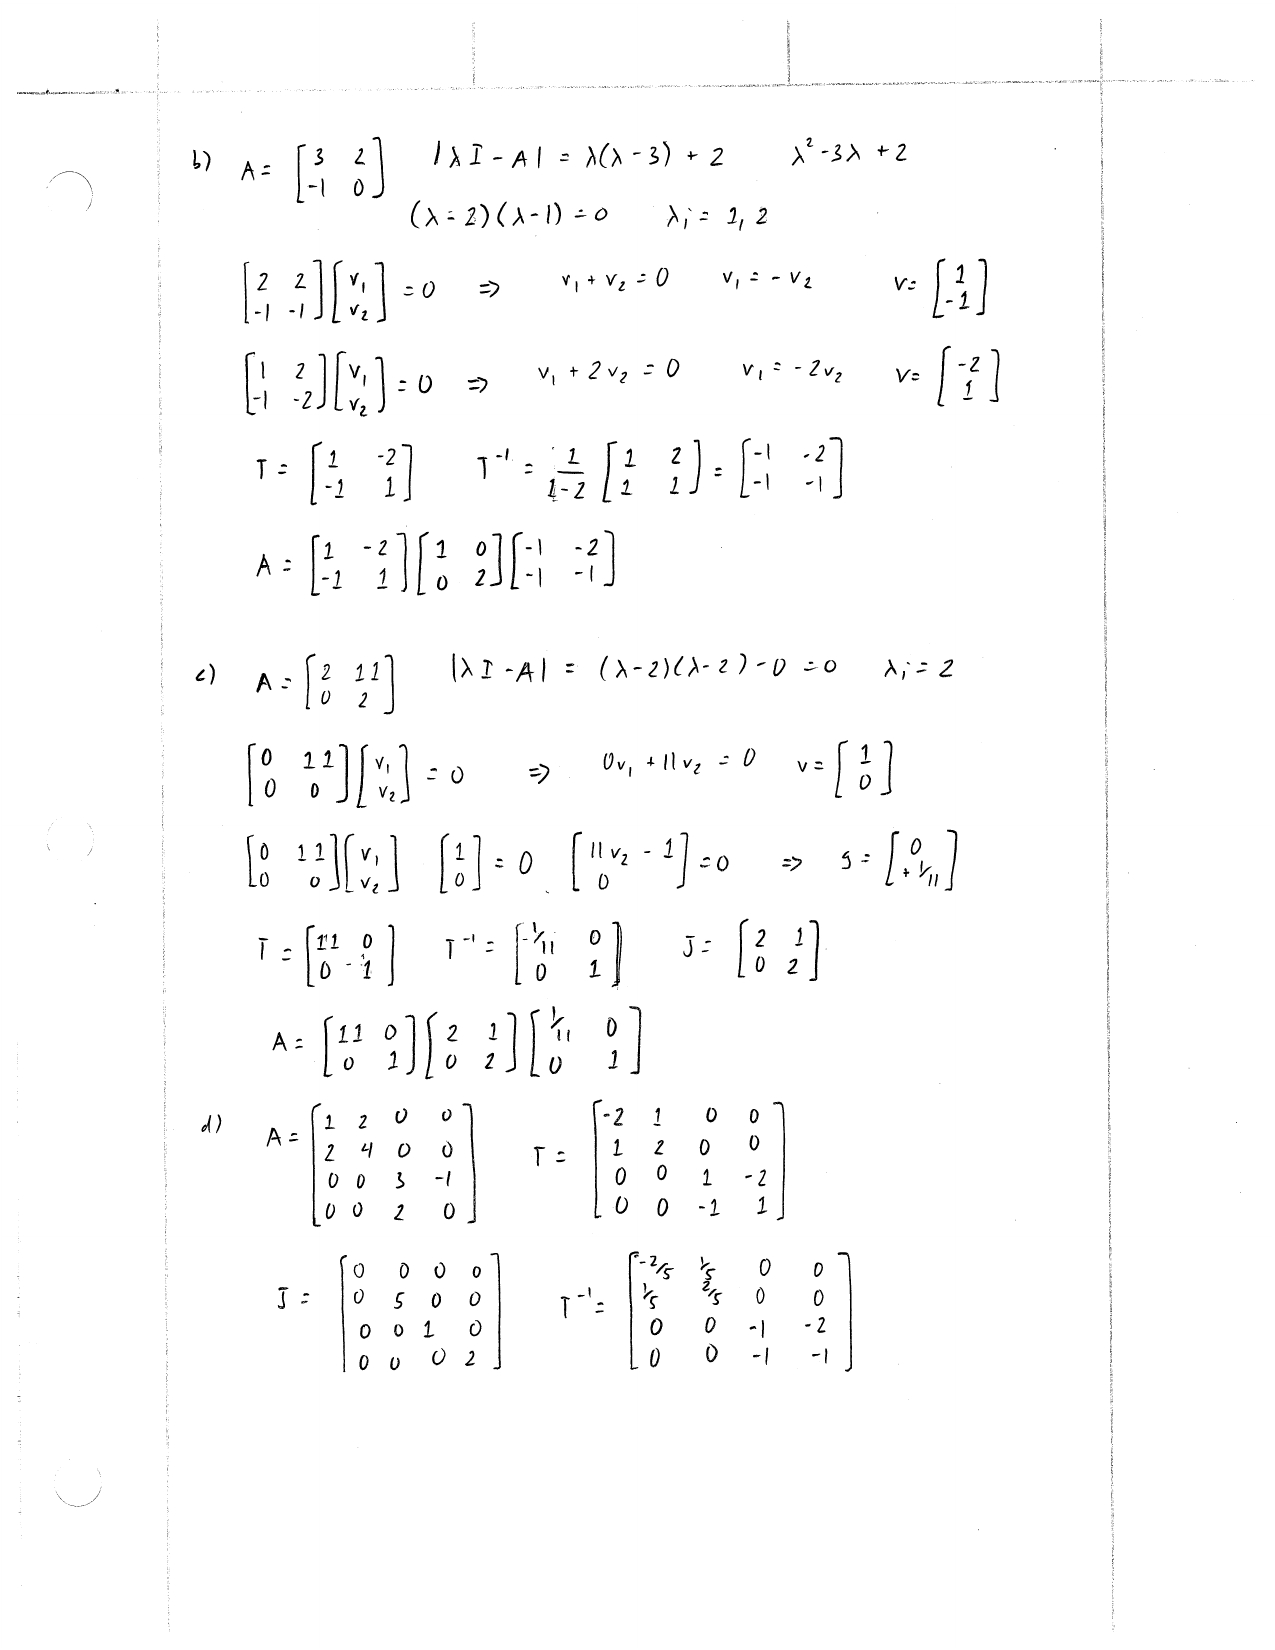 b) A = [3 2; -1 0] |λI - A| = λ(λ-3) + 2 λ² - 3λ + 2
(λ-2)(λ-1) = 0 λi = 1, 2
[2 2; -1 -1][v₁; v₂] = 0 ⇒ v₁ + v₂ = 0 v₁ = -v₂ v = [1; -1]
[1 2; -1 -2][v₁; v₂] = 0 ⇒ v₁ + 2v₂ = 0 v₁ = -2v₂ v = [-2; 1]
T = [1 -2; -1 1] T⁻¹ = 1/(1-2) [1 2; 1 1] = [-1 -2; -1 -1]
A = [1 -2; -1 1][1 0; 0 2][-1 -2; -1 -1]
c) A = [2 11; 0 2] |λI - A| = (λ-2)(λ-2) - 0 = 0 λi = 2
[0 11; 0 0][v₁; v₂] = 0 ⇒ 0v₁ + 11v₂ = 0 v = [1; 0]
[0 11; 0 0][v₁; v₂] [1; 0] = 0 [11v₂ - 1; 0] = 0 ⇒ s = [0; +1/11]
T = [11 0; 0 -1] T⁻¹ = [-1/11 0; 0 1] J = [2 1; 0 2]
A = [11 0; 0 1][2 1; 0 2][1/11 0; 0 1]
d) A = [1 2 0 0; 2 4 0 0; 0 0 3 -1; 0 0 2 0] T = [-2 1 0 0; 1 2 0 0; 0 0 1 -2; 0 0 -1 1]
J = [0 0 0 0; 0 5 0 0; 0 0 1 0; 0 0 0 2] T⁻¹ = [-2/5 1/5 0 0; 1/5 2/5 0 0; 0 0 -1 -2; 0 0 -1 -1]